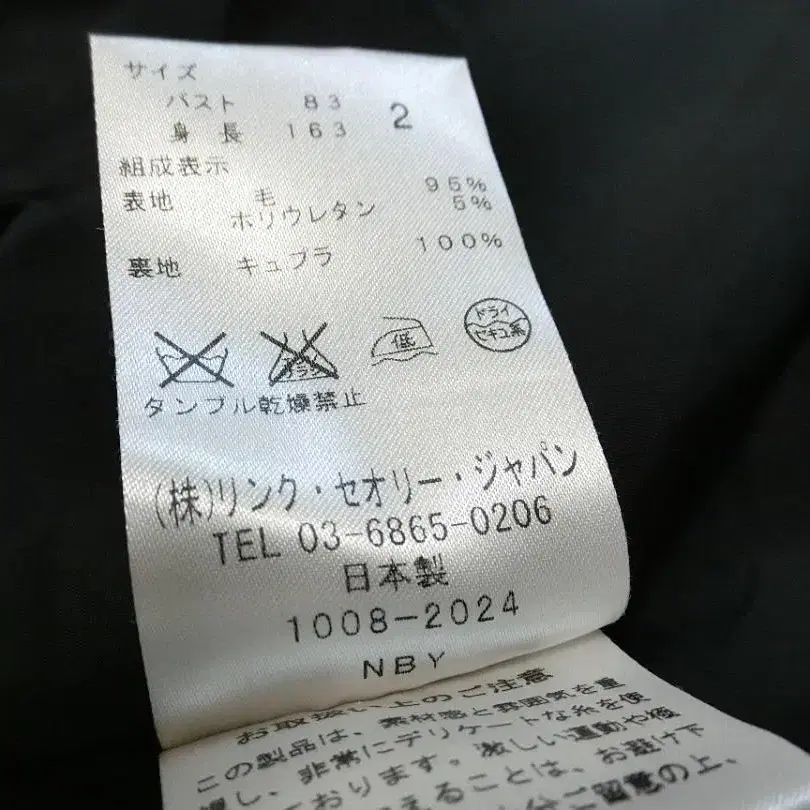 サイズ
バスト 83 2
身長 163
組成表示
表地 毛 95%
ポリウレタン 5%
裏地 キュプラ 100%
低
ドライ
セキユ系
タンブル乾燥禁止
(株)リンク・セオリー・ジャパン
TEL 03-6865-0206
日本製
1008-2024
NBY
お取扱い上のご注意
この製品は、素材感と雰囲気を重
し、非常にデリケートな糸を使
ております。激しい運動や極
えることは、お避け下
ご留意の上、